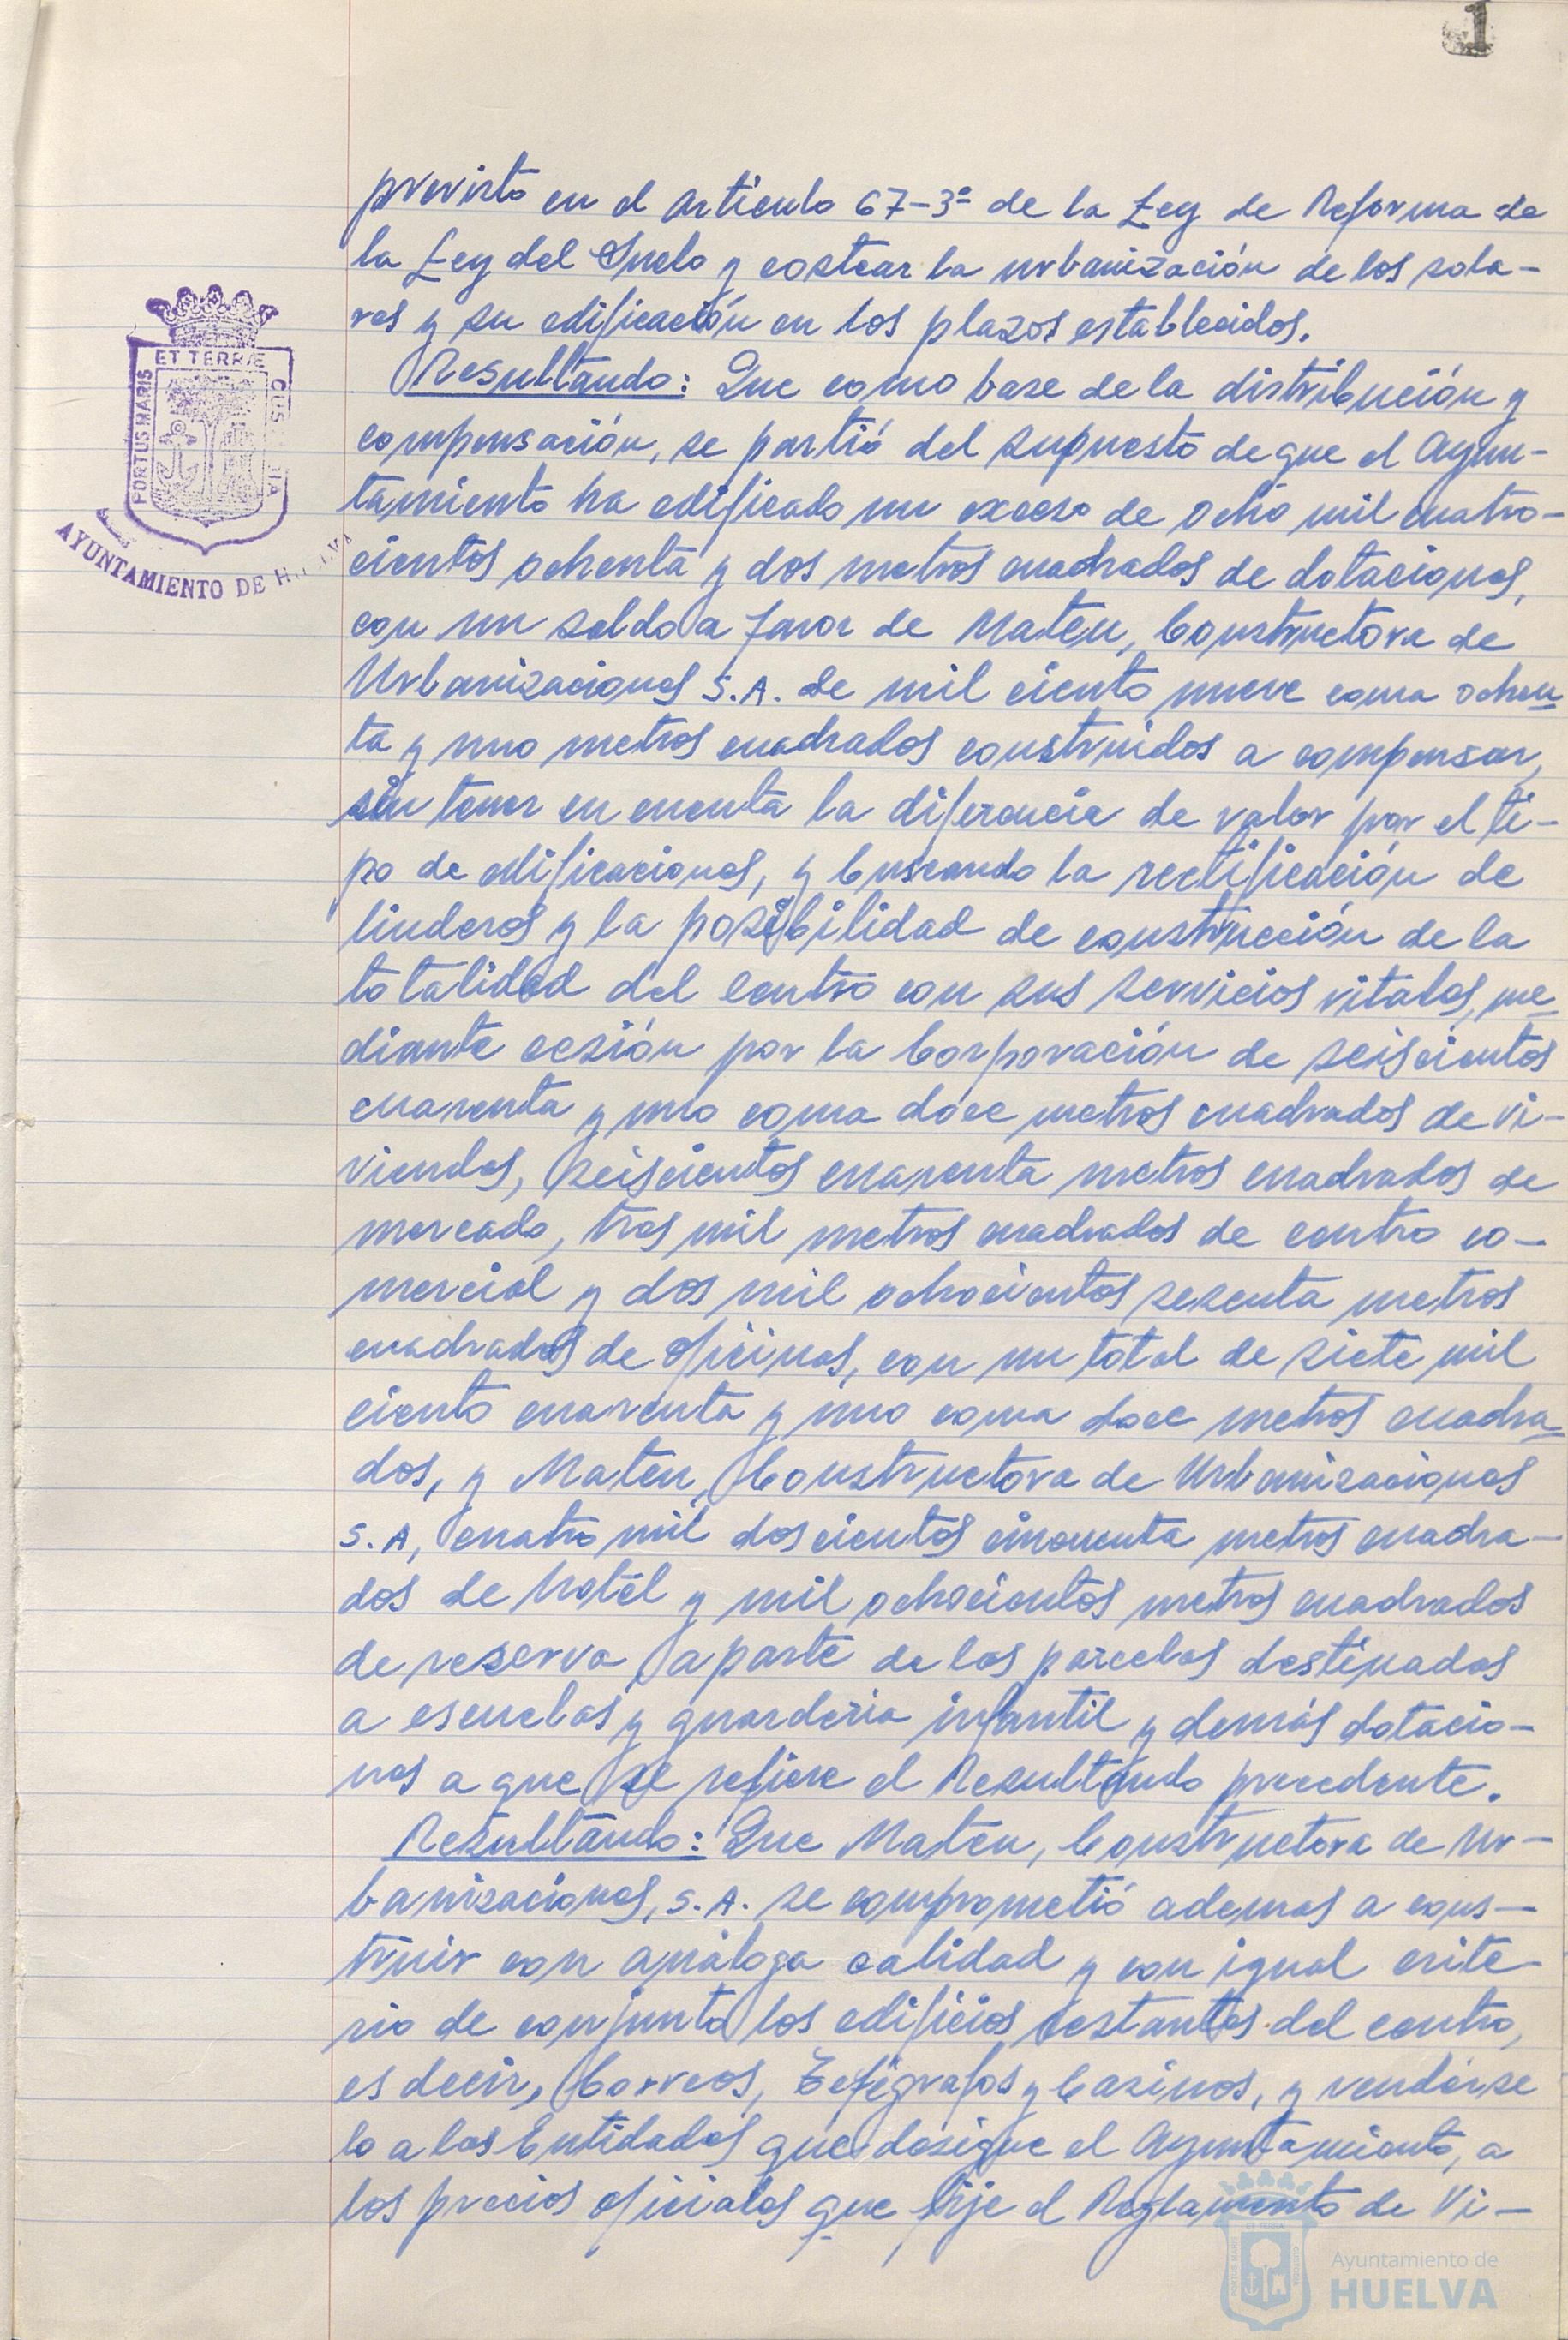 1
previsto en el artículo 67-3º de la Ley de Reforma de
la Ley del Suelo y costear la urbanización de los sola-
res y su edificación en los plazos establecidos.
Resultando: Que como base de la distribución y
compensación, se partió del supuesto de que el Ayun-
tamiento ha edificado un exceso de ocho mil cuatro-
cientos ochenta y dos metros cuadrados de dotaciones,
con un saldo a favor de Mateu, Constructora de
Urbanizaciones S.A. de mil ciento nueve coma ochen
ta y uno metros cuadrados construidos a compensar,
sin tener en cuenta la diferencia de valor por el ti-
po de edificaciones, y buscando la rectificación de
linderos y la posibilidad de construcción de la
totalidad del centro con sus servicios vitales, me
diante cesión por la Corporación de seiscientos
cuarenta y uno coma doce metros cuadrados de vi-
viendas, seiscientos cuarenta metros cuadrados de
mercado, tres mil metros cuadrados de centro co-
mercial y dos mil ochocientos sesenta metros
cuadrados de oficinas, con un total de siete mil
ciento cuarenta y uno coma doce metros cuadra
dos, y Mateu, Constructora de Urbanizaciones
S.A, cuatro mil doscientos cincuenta metros cuadra-
dos de hotel y mil ochocientos metros cuadrados
de reserva, aparte de las parcelas destinadas
a escuelas y guardería infantil y demás dotacio-
nes a que se refiere el Resultando precedente.
Resultando: Que Mateu, Constructora de Ur-
banizaciones, S.A. se comprometió ademas a cons-
truir con análoga calidad y con igual crite-
rio de conjunto los edificios restantes del centro,
es decir, Correos, Telégrafos y Casinos, y vendérse
lo a las Entidades que designe el Ayuntamiento, a
los precios oficiales que fije el Reglamento de Vi-
PORTUS MARIS
ET TERRÆ
CUS
IA
AYUNTAMIENTO DE
Ayuntamiento de
HUELVA